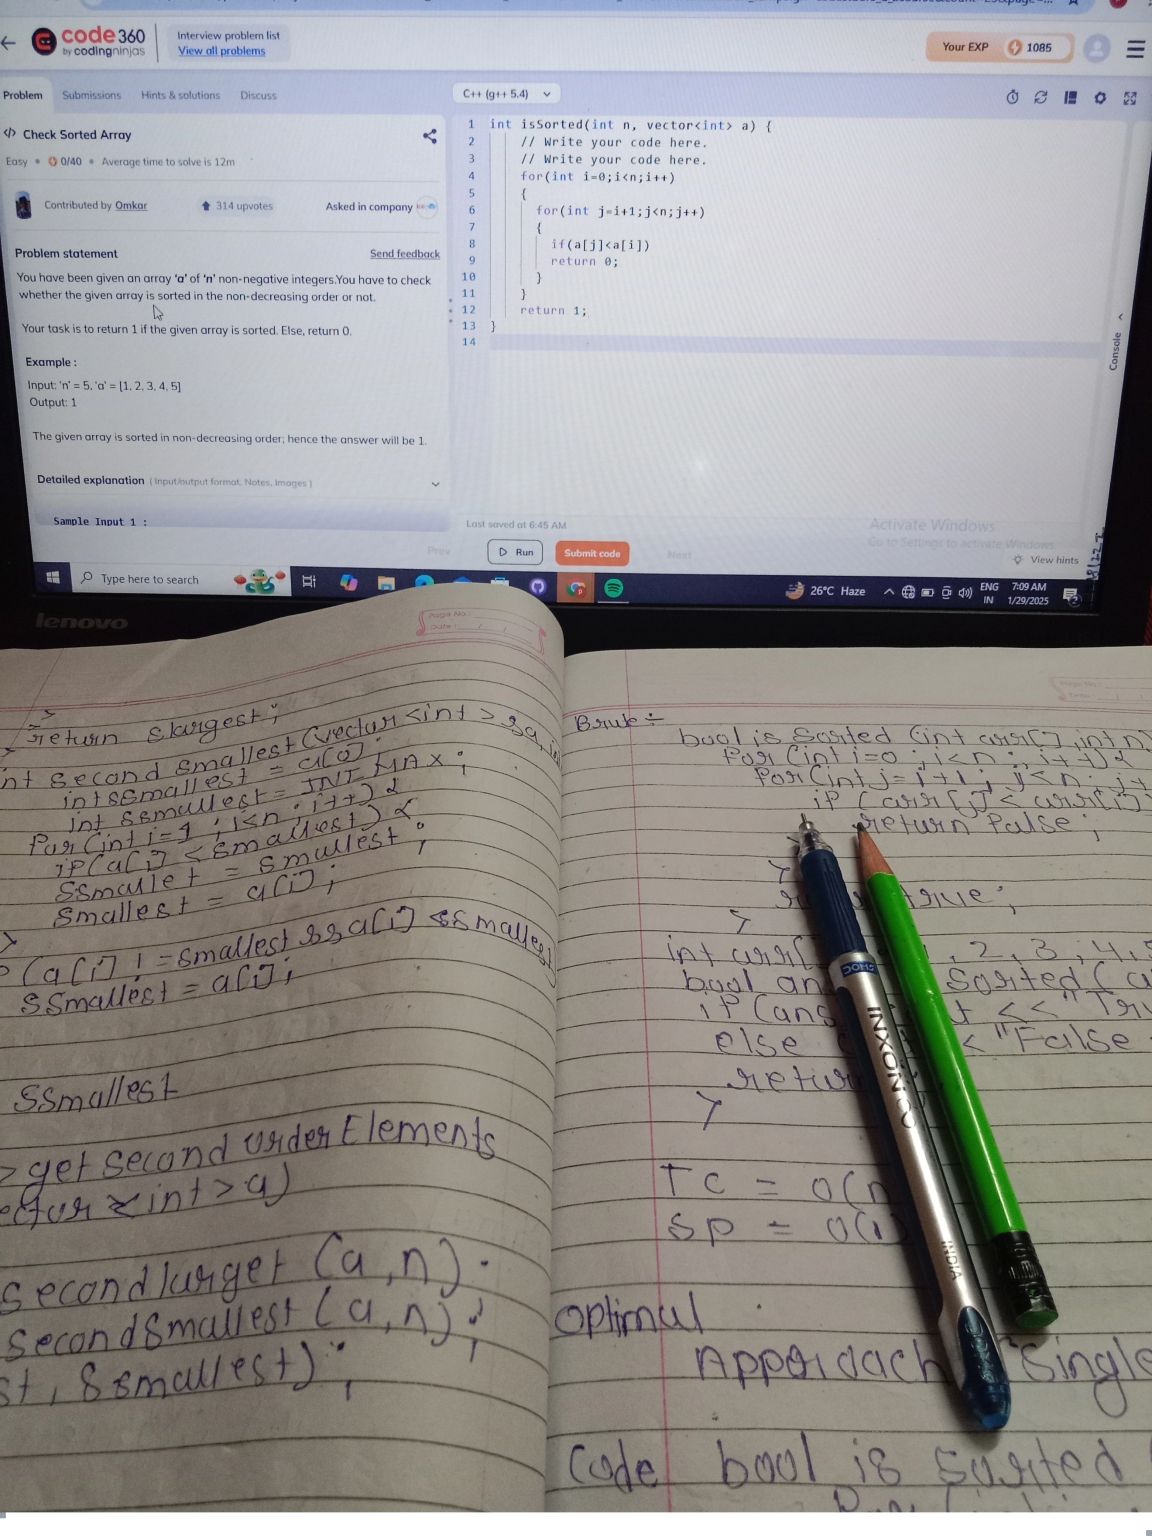 code360
by codingninjas
Interview problem list
View all problems
Your EXP 1085
Problem Submissions Hints & solutions Discuss
C++ (g++ 5.4)
</> Check Sorted Array
Easy • 0/40 • Average time to solve is 12m
Contributed by Omkar 314 upvotes Asked in company
Problem statement Send feedback
You have been given an array 'a' of 'n' non-negative integers.You have to check
whether the given array is sorted in the non-decreasing order or not.
Your task is to return 1 if the given array is sorted. Else, return 0.
Example :
Input: 'n' = 5, 'a' = [1, 2, 3, 4, 5]
Output: 1
The given array is sorted in non-decreasing order; hence the answer will be 1.
Detailed explanation ( Input/output format, Notes, Images )
Sample Input 1 :
1 int isSorted(int n, vector<int> a) {
2 // Write your code here.
3 // Write your code here.
4 for(int i=0;i<n;i++)
5 {
6 for(int j=i+1;j<n;j++)
7 {
8 if(a[j]<a[i])
9 return 0;
10 }
11 }
12 return 1;
13 }
14
Console
Last saved at 6:45 AM
Activate Windows
Go to Settings to activate Windows.
Prev Run Submit code Next
View hints
Type here to search
26°C Haze
ENG
IN
7:09 AM
1/29/2025
lenovo
Page No.
return slargest;
int second smallest (vector<int> &a,
int ssmallest = a[0];
int ssmallest = INT_MAX;
for (int i=1; i<n; i++) {
if (a[i] < smallest) {
ssmallet = smallest;
smallest = a[i];
}
(a[i] != smallest && a[i] < ssmallest
ssmallest = a[i];
ssmallest
> get second order Elements
<int> a)
second larget (a,n);
second smallest (a,n);
st, ssmallest);
Brute ÷
bool is Sorted (int arr[], int n)
for (int i=0; i<n; i++) {
for (int j=i+1; j<n; j+
if (arr[j] < arr[i])
return false;
}
}
int arr[ 1, 2, 3, 4, 5
bool an Sorted (a
if (ans << "Tru
else < "False
retur
}
TC = O(n
SP = O(1)
optimal
Approach Single
Code bool is sorted
DOMS
INXON CO
INDIA